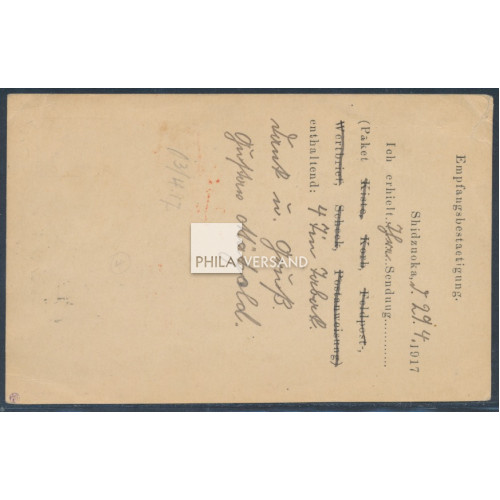 Empfangsbestaetigung.
Shidzuoka, d. 29. 4. 1917
Ich erhielt Ihre Sendung...........
(Paket Kiste, Korb, Feldpost-,
Wertbrief, Scheck, Postanweisung)
enthaltend: 4 Tin Tabak.
Dank u. Gruß.
Gustav
PHILA VERSAND